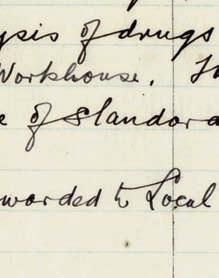 ysis of drugs
Workhouse. Th
e of standard
warded to Local